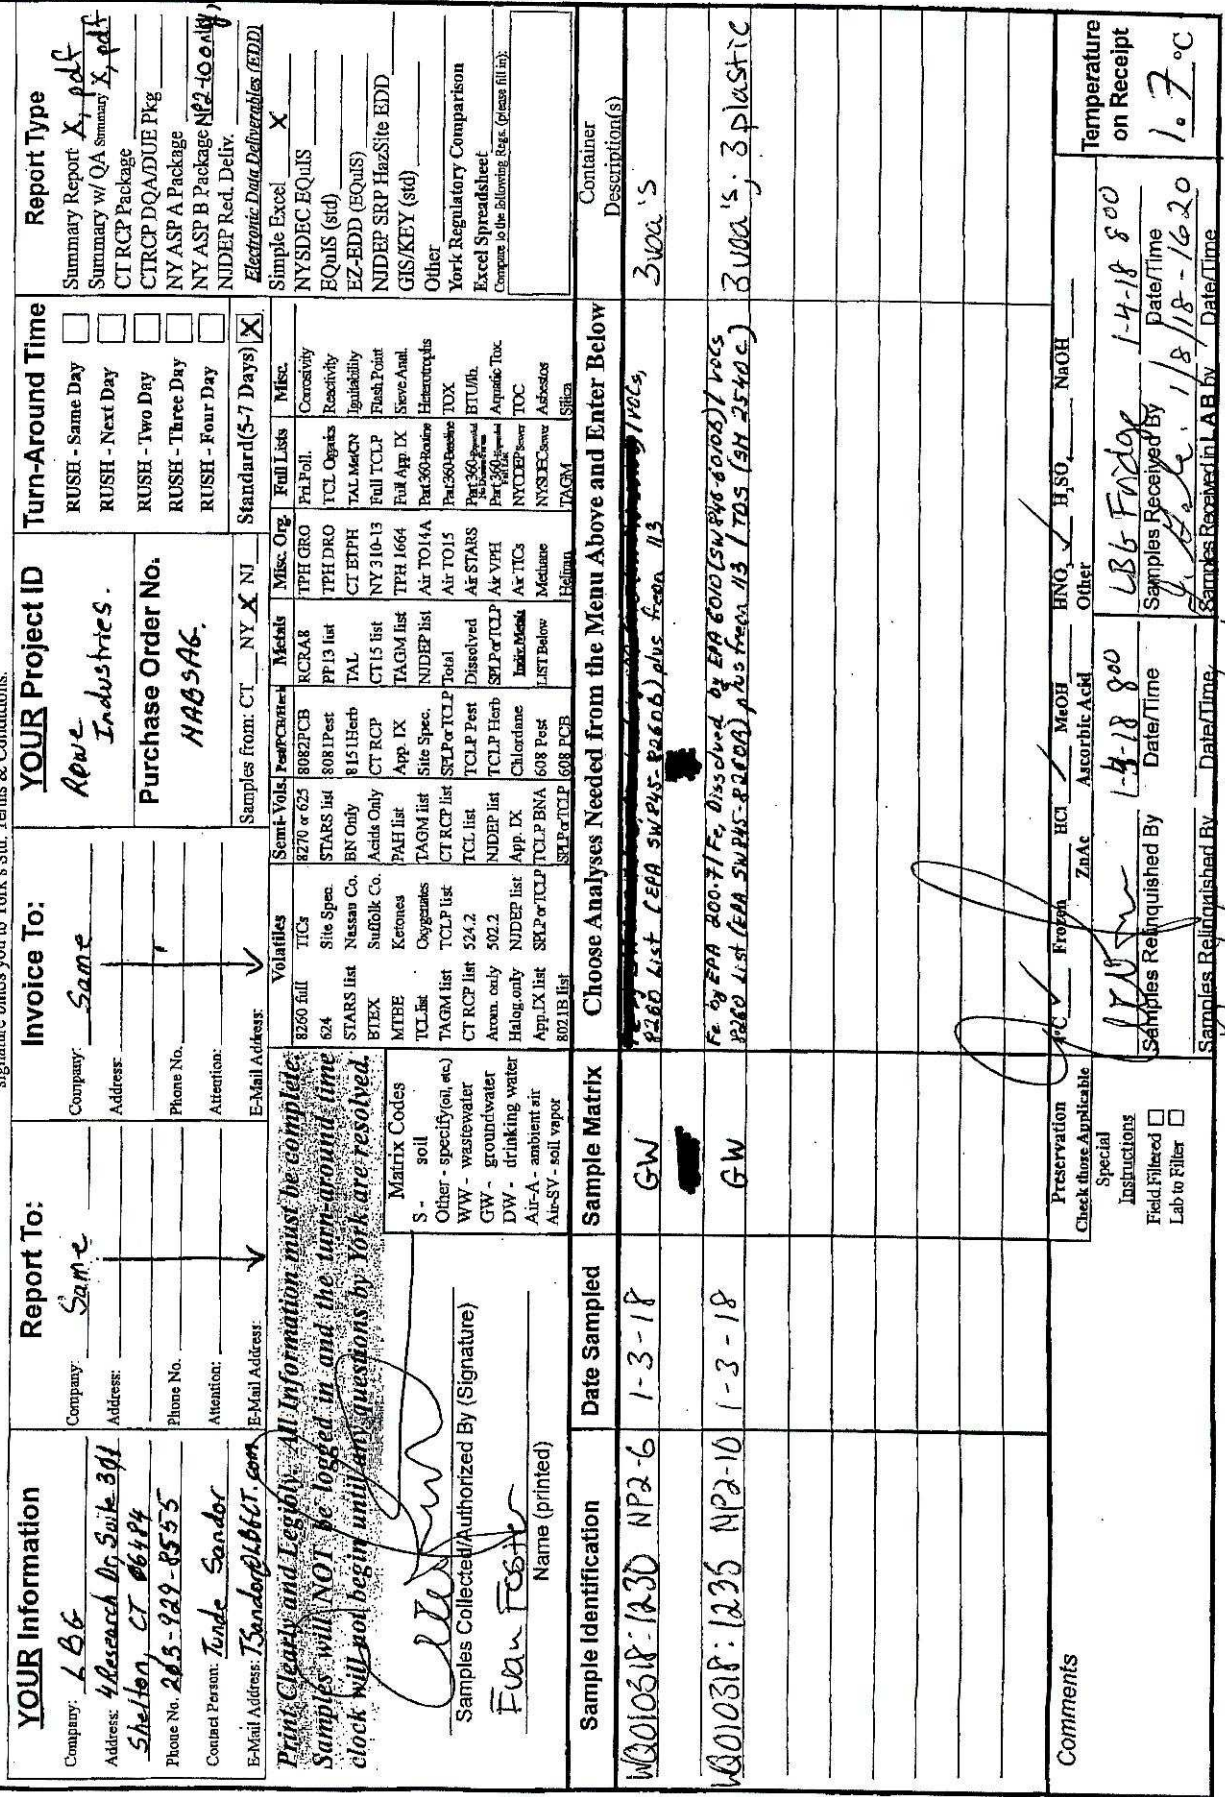 signature binds you to York's Std. Terms & Conditions.
YOUR Information
Company: LBG
Address: 4 Research Dr, Suite 301
Shelton, CT 06484
Phone No. 203-929-8555
Contact Person: Tunde Sandor
E-Mail Address: TSandor@LBGCT.com
Report To:
Company: Same
Address:
Phone No.
Attention:
E-Mail Address:
Invoice To:
Company: Same
Address:
Phone No.
Attention:
E-Mail Address:
YOUR Project ID
Rowe
Industries.
Purchase Order No.
NABSAG.
Samples from: CT NY X NJ
Turn-Around Time
RUSH - Same Day
RUSH - Next Day
RUSH - Two Day
RUSH - Three Day
RUSH - Four Day
Standard(5-7 Days) X
Report Type
Summary Report X, pdf
Summary w/ QA Summary X, pdf
CT RCP Package
CTRCP DQA/DUE Pkg
NY ASP A Package
NY ASP B Package NP2-10 only,
NJDEP Red. Deliv.
Electronic Data Deliverables (EDD)
Simple Excel X
NYSDEC EQuIS
EQuIS (std)
EZ-EDD (EQuIS)
NJDEP SRP HazSite EDD
GIS/KEY (std)
Other
York Regulatory Comparison
Excel Spreadsheet
Compare to the following Regs. (please fill in):
Print Clearly and Legibly. All Information must be complete.
Samples will NOT be logged in and the turn-around time
clock will not begin until any questions by York are resolved.
Samples Collected/Authorized By (Signature)
Evan Foster
Name (printed)
Matrix Codes
S - soil
Other - specify(oil, etc.)
WW - wastewater
GW - groundwater
DW - drinking water
Air-A - ambient air
Air-SV - soil vapor
Volatiles
8260 full TICs
624 Site Spec.
STARS list Nassau Co.
BTEX Suffolk Co.
MTBE Ketones
TCL list Oxygenates
TAGM list TCLP list
CT RCP list 524.2
Arom. only 502.2
Halog. only NJDEP list
App.IX list SPLP or TCLP
8021B list
Semi-Vols.
8270 or 625
STARS list
BN Only
Acids Only
PAH list
TAGM list
CT RCP list
TCL list
NJDEP list
App. IX
TCLP BNA
SPLP or TCLP
Pest/PCB/Herb
8082PCB
8081Pest
8151Herb
CT RCP
App. IX
Site Spec.
SPLP or TCLP
TCLP Pest
TCLP Herb
Chlordane
608 Pest
608 PCB
Metals
RCRA8
PP13 list
TAL
CT15 list
TAGM list
NJDEP list
Total
Dissolved
SPLP or TCLP
Indiv. Metals
LIST Below
Misc. Org.
TPH GRO
TPH DRO
CT ETPH
NY 310-13
TPH 1664
Air TO14A
Air TO15
Air STARS
Air VPH
Air TICs
Methane
Helium
Full Lists
Pri.Poll.
TCL Organics
TAL MetCN
Full TCLP
Full App. IX
Part 360-Routine
Part 360-Baseline
Part 360-Expanded
NYCDEP Sewer
NYSDEC Sewer
TAGM
Misc.
Corrosivity
Reactivity
Ignitability
Flash Point
Sieve Anal.
Heterotrophs
TOX
BTU/lb.
Aquatic Tox.
TOC
Asbestos
Silica
Sample Identification
Date Sampled
Sample Matrix
Choose Analyses Needed from the Menu Above and Enter Below
Container Description(s)
WQ010318:1230 NP2-6 1-3-18 GW VOCs, 3 voa's
8260 List (EPA SW845-8260B) plus freon 113
WQ010318:1235 NP2-10 1-3-18 GW Fe by EPA 200.7/Fe, Dissolved by EPA 6010 (SW846-6010B)/VOCs 3 voa's, 3 plastic
8260 List (EPA SW845-8260B) plus freon 113 / TDS (SM 2540C)
Comments
Preservation
Check those Applicable
4°C ✓ Frozen HCl ✓ MeOH HNO3 ✓ H2SO4 NaOH
ZnAc Ascorbic Acid Other
Special
Instructions
Field Filtered
Lab to Filter
1-4-18 800
Samples Relinquished By Date/Time
LBG Fridge 1-4-18 800
Samples Received By Date/Time
1/8/18-1620
Samples Relinquished By Date/Time
Samples Received in LAB by Date/Time
Temperature
on Receipt
1.7 °C